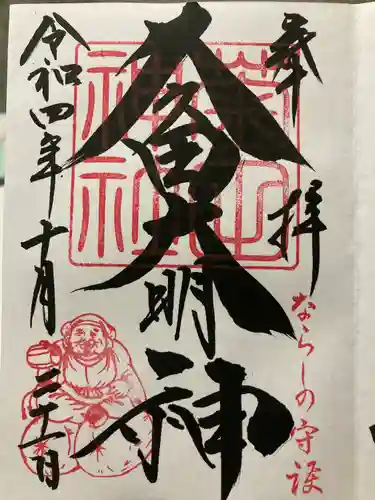 奉拝
ならしの守護
菊田神社
大明神
令和四年十月三十一日